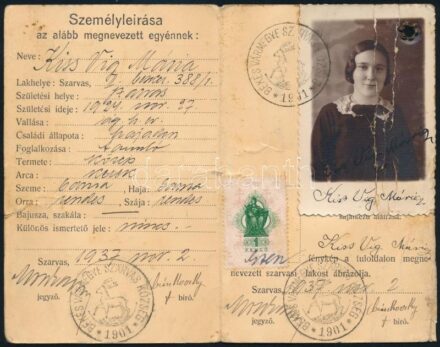 Személyleirása
az alább megnevezett egyénnek:
Neve: Kiss Vig Mária
Lakhelye: Szarvas, I. 388/1.
Születési helye: Szarvas
Születési ideje: 1924. nov. 27
Vallása: ág. h. ev.
Családi állapota: hajadon
Foglalkozása: tanuló
Termete: közép
Arca: kerek
Szeme: barna, Haja: barna
Orra: rendes, Szája: rendes
Bajusza, szakála:
Különös ismertető jele: nincs.
Szarvas, 1937 nov. 2
jegyző. biró.
BÉKÉS VÁRMEGYE SZARVAS KÖZSÉG
* 1901 *
BÉKÉS VÁRMEGYE SZARVAS KÖZSÉG
* 1901 *
Kiss Vig Mária
1
Kiss Vig Mária
fénykép a túloldalon megne-
vezett szarvasi lakost ábrázolja.
Szarvas, 1937 nov. 2
jegyző. biró.
BÉKÉS VÁRMEGYE SZARVAS KÖZSÉG
* 1901 *
darabanth